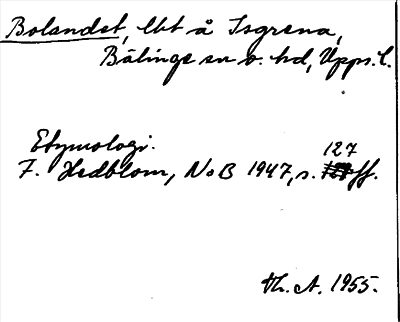 Bolandet, lbt å Isgrena,
Bälinge sn o. hd, Upps. l.
Etymologi.
F. Hedblom, NoB 1947, s. 127 ff.
th. A. 1955.